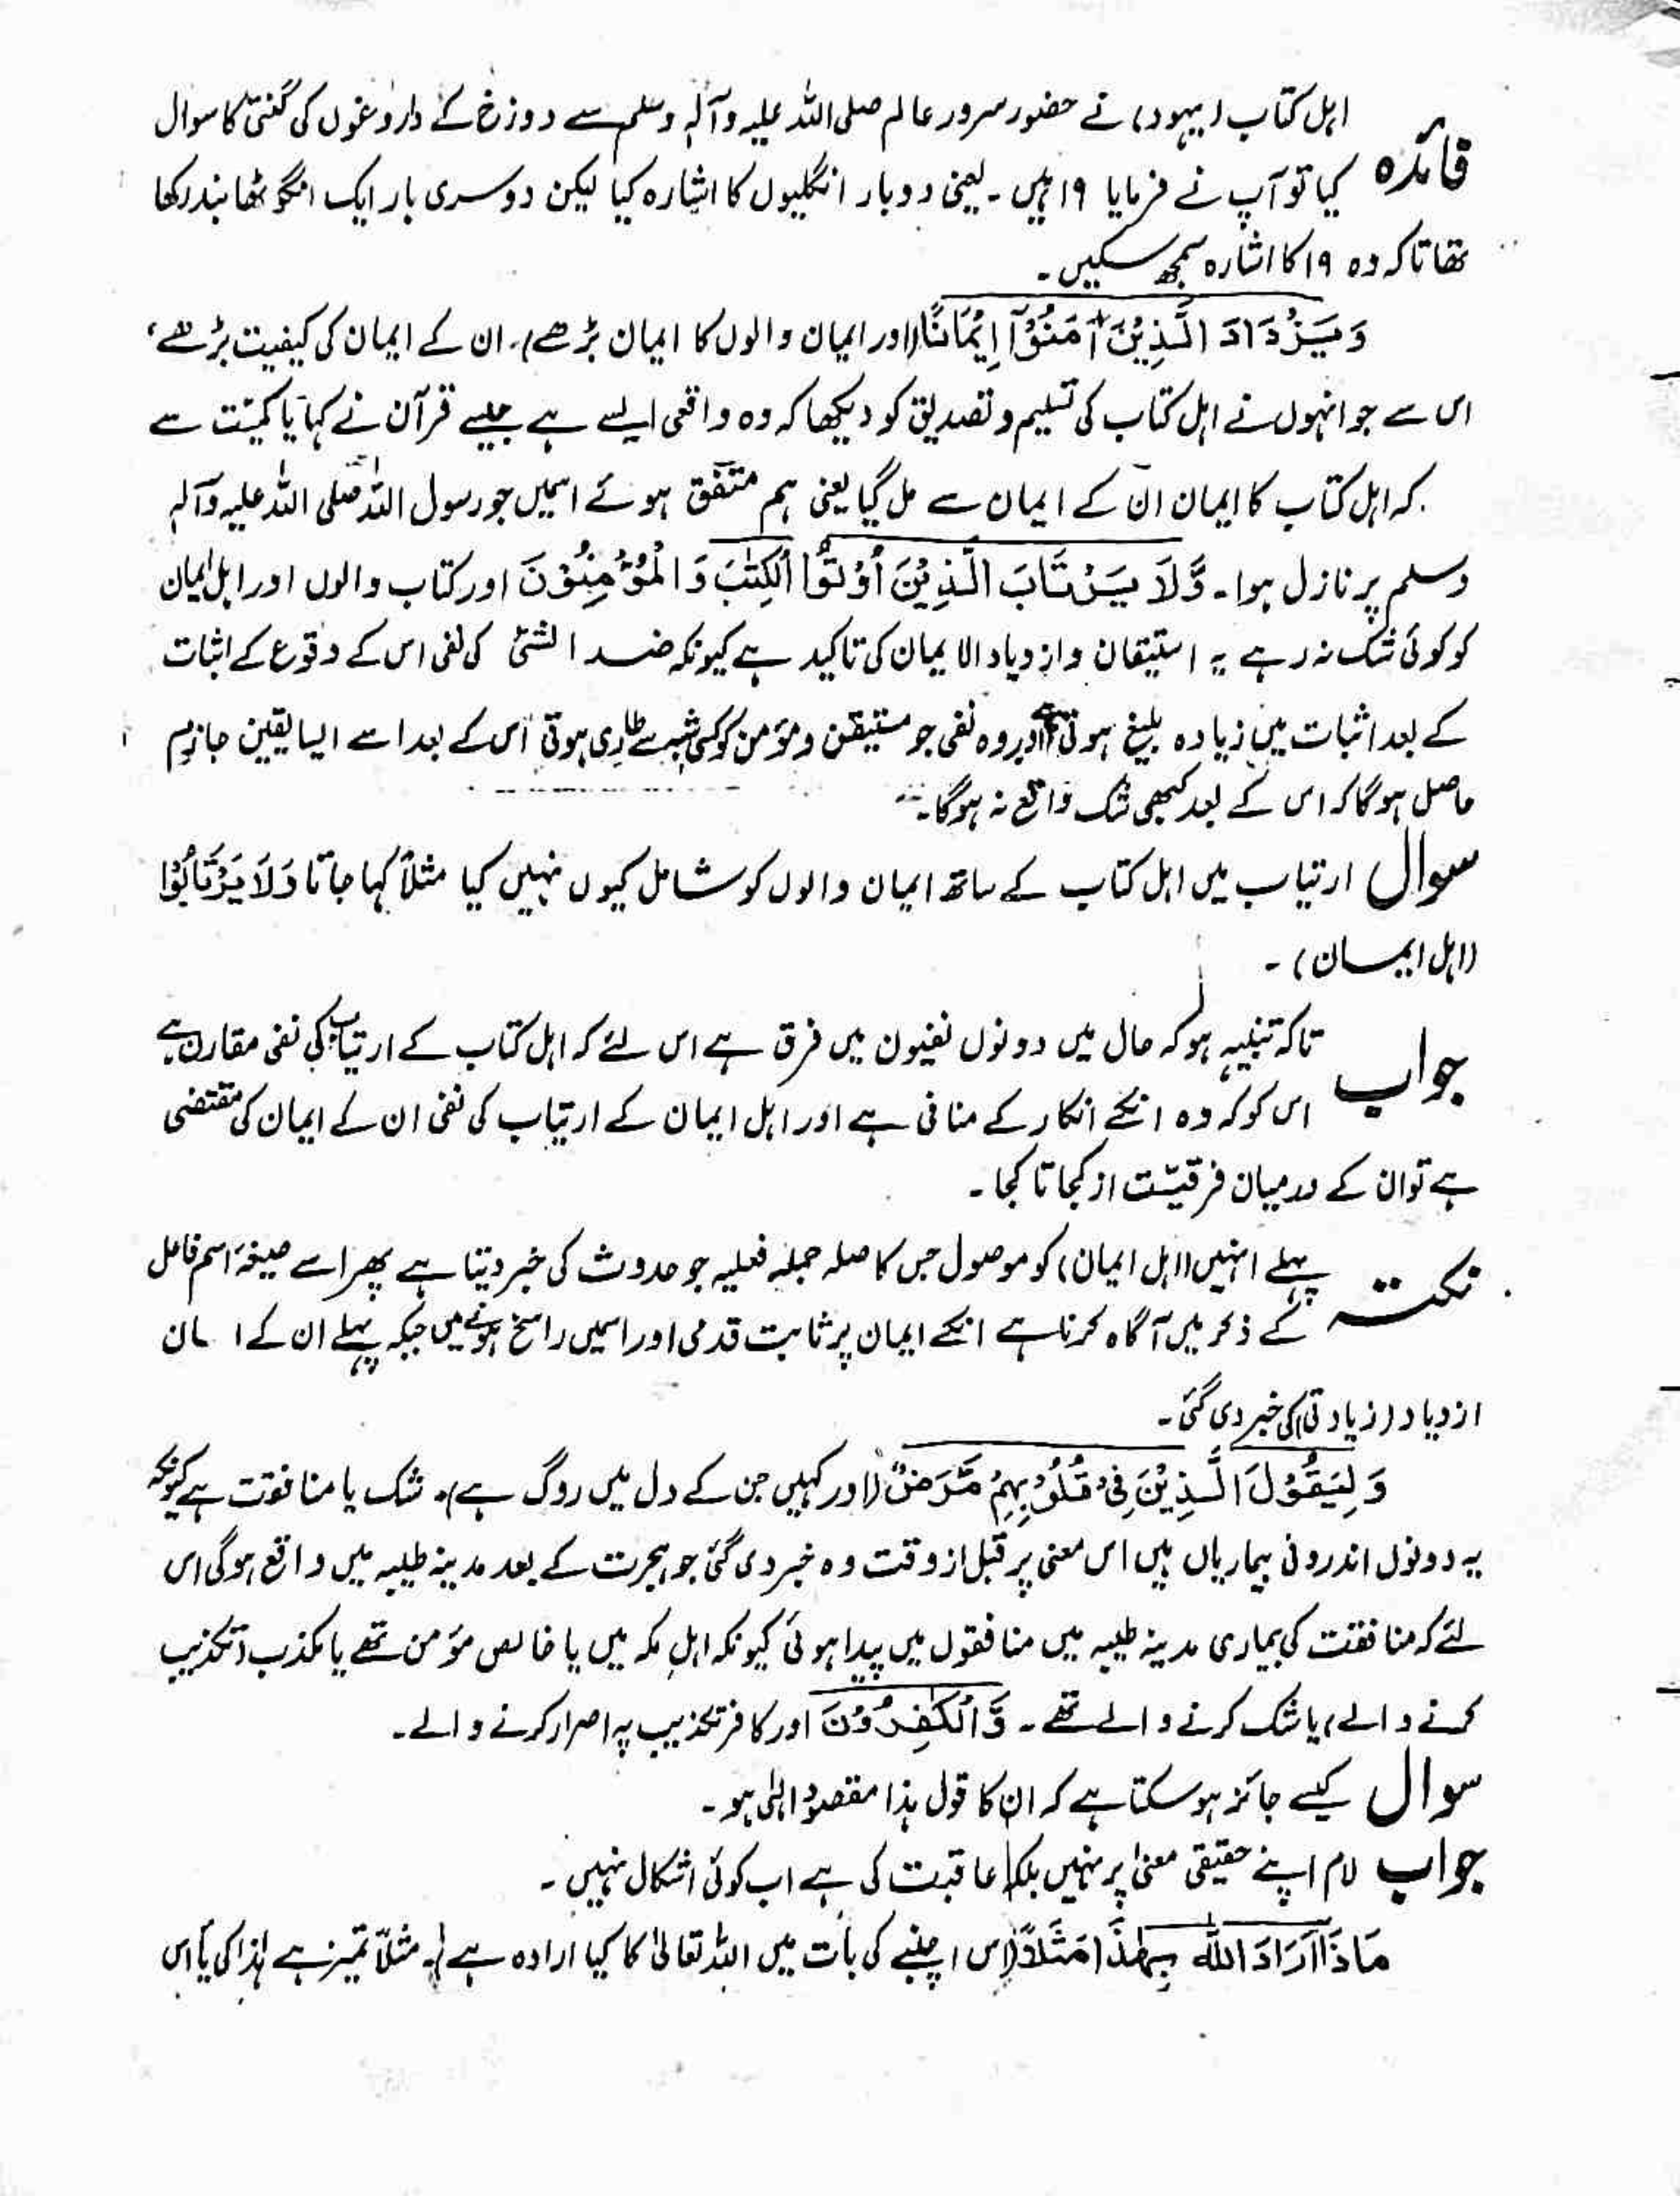 اہل کتاب (یہود) نے حضور سرور عالم صلی اللہ علیہ وآلہٖ وسلم سے دوزخ کے داروغوں کی گنتی کا سوال
فائدہ کیا تو آپ نے فرمایا ۱۹ ہیں۔ یعنی دوبار انگلیوں کا اشارہ کیا لیکن دوسری بار ایک انگوٹھا بند رکھا
تھا تاکہ وہ ۱۹ کا اشارہ سمجھ سکیں۔
وَيَزْدَادَ الَّذِيْنَ آمَنُوْٓا اِيْمَانًا (اور ایمان والوں کا ایمان بڑھے)۔ ان کے ایمان کی کیفیت بڑھے،
اس سے جو انہوں نے اہل کتاب کی تسلیم و تصدیق کو دیکھا کہ وہ واقعی ایسے ہے جیسے قرآن نے کہا یا کمیّت سے
کہ اہل کتاب کا ایمان ان کے ایمان سے مل گیا یعنی ہم متفق ہوئے اسمیں جو رسول اللہ صلی اللہ علیہ وآلہ
وسلم پر نازل ہوا۔ وَّلَا يَرْتَابَ الَّذِيْنَ اُوْتُوا الْكِتٰبَ وَالْمُؤْمِنُوْنَ اور کتاب والوں اور اہل ایمان
کو کوئی شک نہ رہے یہ استیقان و ازدیاد الایمان کی تاکید ہے کیونکہ ضد الشئ کی نفی اس کے وقوع کے اثبات
کے بعد اثبات میں زیادہ بلیغ ہوتی ہے اور وہ نفی جو مستیقن و مؤمن کو کسی شبہ سے طاری ہوتی اس کے بعد اسے ایسا یقین جازم
حاصل ہوگا کہ اس کے بعد کبھی شک واقع نہ ہوگا۔
سوال ارتیاب میں اہل کتاب کے ساتھ ایمان والوں کو شامل کیوں نہیں کیا مثلاً کہا جاتا وَلَا يَرْتَابُوْا
(اہل ایمان)۔
تاکہ تنبیہ ہو کہ حال میں دونوں نفیون میں فرق ہے اس لئے کہ اہل کتاب کے ارتیاب کی نفی مقارن ہے
جواب اس کو کہ وہ انکے انکار کے منافی ہے اور اہل ایمان کے ارتیاب کی نفی ان کے ایمان کی مقتضی
ہے تو ان کے درمیان فرقیّت از کجا تا کجا۔
پہلے انہیں (اہل ایمان) کو موصول جس کا صلہ جملہ فعلیہ جو حدوث کی خبر دیتا ہے پھر اسے صیغۂ اسم فاعل
نکتہ کے ذکر میں آگاہ کرنا ہے انکے ایمان پر ثابت قدمی اور اسمیں راسخ ہونے میں جبکہ پہلے ان کے
ازدیاد (زیادتی) کی خبر دی گئی۔
وَلِيَقُوْلَ الَّذِيْنَ فِيْ قُلُوْبِهِمْ مَّرَضٌ (اور کہیں جن کے دل میں روگ ہے)۔ شک یا منافقت ہے کیونکہ
یہ دونوں اندرونی بیماریاں ہیں اس معنی پر قبل از وقت وہ خبر دی گئی جو ہجرت کے بعد مدینہ طیبہ میں واقع ہوگی اس
لئے کہ منافقت کی بیماری مدینہ طیبہ میں منافقوں میں پیدا ہوئی کیونکہ اہلِ مکہ میں یا خالص مؤمن تھے یا مکذب (تکذیب
کرنے والے) یا شک کرنے والے تھے۔ وَّالْكٰفِرُوْنَ اور کافر تکذیب پہ اصرار کرنے والے۔
سوال کیسے جائز ہو سکتا ہے کہ ان کا قول ہذا مقصودِ الٰہی ہو۔
جواب لام اپنے حقیقی معنیٰ پر نہیں بلکہ عاقبت کی ہے اب کوئی اشکال نہیں۔
مَاذَآ اَرَادَ اللّٰهُ بِهٰذَا مَثَلًا (اس اچنبے کی بات میں اللہ تعالیٰ کا کیا ارادہ ہے)۔ مثلاً تمیز ہے لہٰذا کی یا اس